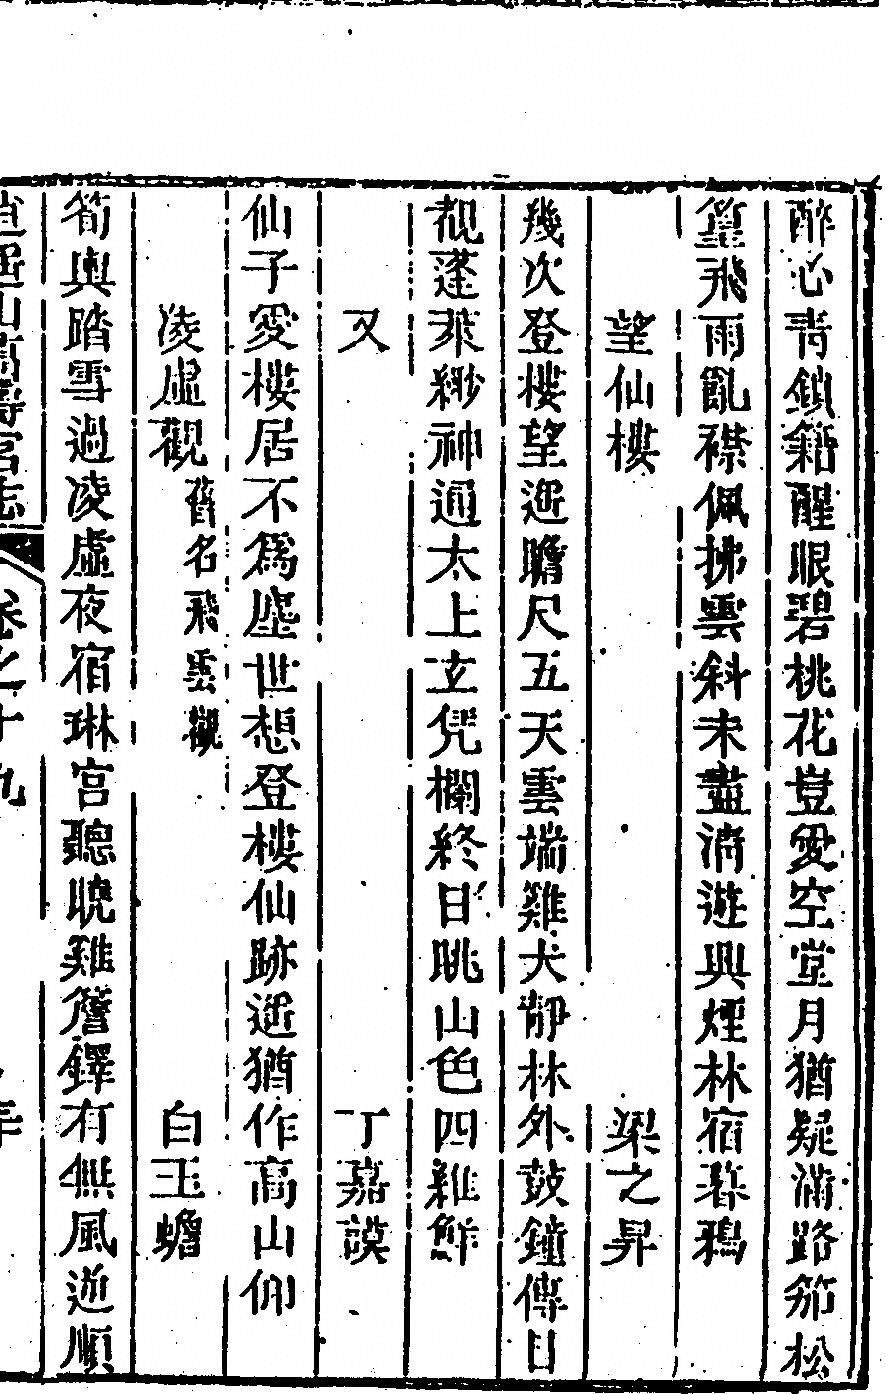 醉心靑鎖籍醒眼碧桃花豈愛空堂月猶疑滿路笳松
篁飛雨亂襟佩拂雲斜未盡淸遊興煙林宿暮鴉
望仙樓 梁之昇
幾次登樓望遥瞻尺五天雲端雞犬靜林外鼓鐘傳目
覩蓬萊緲神通太上玄凭欄終日眺山色四維鮮
又 丁嘉謨
仙子愛樓居不爲塵世想登樓仙跡遥猶作高山仰
凌虛觀 舊名飛雲觀 白玉蟾
筍輿踏雪過凌虛夜宿琳宫聽曉雞簷鐸有無風逆順
逍遥山萬壽宫志 卷之十九